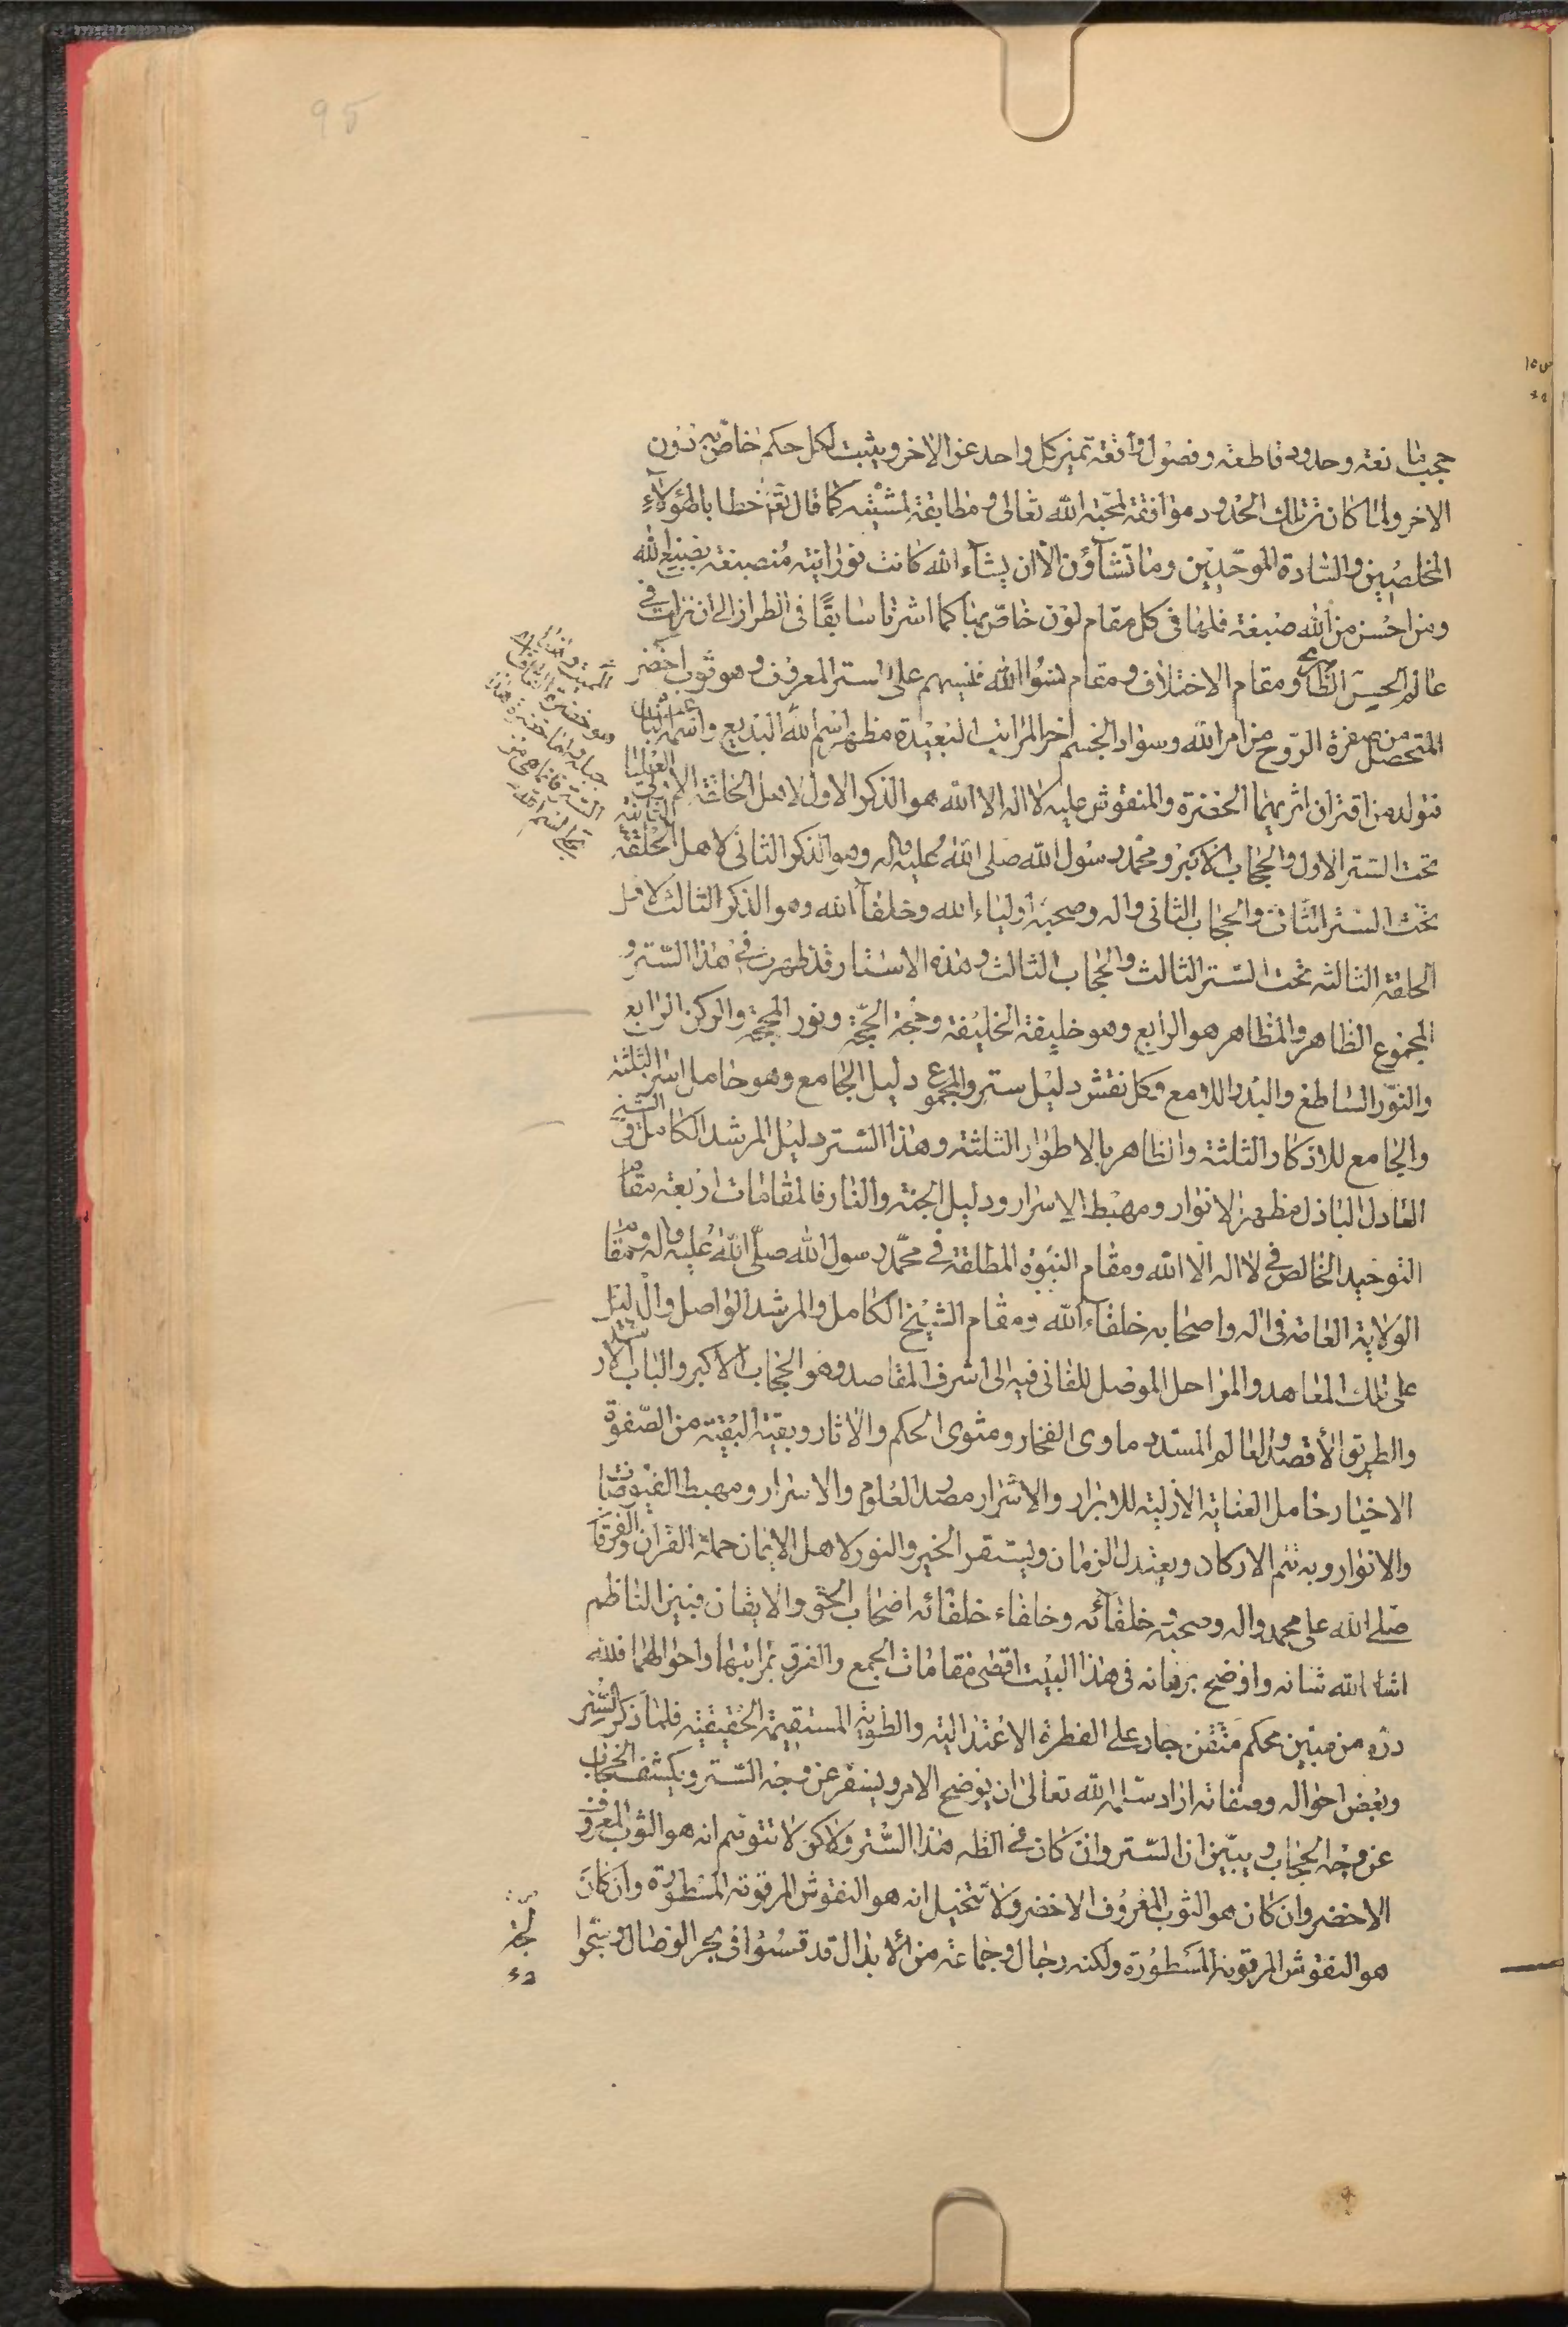 95
حجب مانعة وحدود قاطعة وفصول واقعة تميز كل واحد عن الاخر ويثبت لكل حكم خاص به دون
الاخر ولما كانت تلك الحدود موافقة لمحبة الله تعالى ومطابقة لمشيته كما قال تعم خطابا لهؤلاء
المخلصين والسادة الموحدين وما تشآؤن الا ان يشآء الله كانت نورانية منصبغة بصبغ الله
ومن احسن من الله صبغة فلها في كل مقام لون خاص بها كما اشرنا سابقًا في الطراز الى ان نزلت في
عالم الحس الظاهري ومقام الاختلاف ومقام نسوا الله فنسيهم على الستر المعروف وهو ثوب اخضر
المتحصل من صفرة الروح من امر الله وسواد الجسم اخر المراتب البعيدة مظهر اسم الله البديع
فتولد من اقتران اثريهما الخضرة والمنقوش عليه لا اله الا الله هو الذكر الاول لاهل الحلقة الاولى
تحت الستر الاول والحجاب الاكبر ومحمد رسول الله صلى الله عليه واله وهو الذكر الثاني لاهل الحلقة الثانية
تحت الستر الثاني والحجاب الثاني واله وصحبه اولياء الله وخلفآء الله وهو الذكر الثالث لاهل
الحلقة الثالثة تحت الستر الثالث والحجاب الثالث وهذه الاستار قد ظهرت في هذا الستر و
المجموع الظاهر والمظاهر هو الرابع وهو خليفة الخليفة وحجة الحجة ونور المحجة والركن الرابع
والنور الساطع والبدر اللامع وكل نقش دليل ستر والمجموع دليل الجامع وهو حامل اسرار الثلثة
والجامع للاذكار الثلثة والظاهر بالاطوار الثلثة وهذا الستر دليل المرشد الكامل في السير
العادل الباذل مظهر الانوار ومهبط الاسرار ودليل الجنة والنار فالمقامات اربعة مقام
التوحيد الخالص في لا اله الا الله ومقام النبوة المطلقة في محمد رسول الله صلى الله عليه واله ومقام
الولاية العامة في اله واصحابه خلفآء الله ومقام الشيخ الكامل والمرشد الواصل والدليل
على تلك المعاهد والمراحل الموصل للفاني فيه الى اشرف المقاصد وهو الحجاب الاكبر والباب
والطريق الأقصد والعالم المسدد ماوى الفخار ومثوى الحكم والاثار وبقية البقية من الصفوة
الاخيار حامل العناية الازلية للابرار والاشرار مصدر العلوم والاسرار ومهبط الفيوضات
والانوار وبه تتم الاركان ويعتدل الزمان ويستقر الخير والنور لاهل الايمان حملة القران والفرقان
صلى الله على محمد واله وصحبه وخلفآئه وخلفاء خلفائه اصحاب الحق والايقان فبين الناظم
اشاد الله شانه واوضح برهانه في هذا البيت اقصى مقامات الجمع والفرق بمراتبها واحوالهما فلله
دره من مبين محكم متقن جار على الفطرة الاعتدالية والطوية المستقيمة الحقيقية فلما ذكر الستر
وبعض احواله وصفاته اراد سلمه الله تعالى ان يوضح الامر ويسفر عن وجه الستر ويكشف الحجاب
عن وجه الحجاب ويبين ان الستر وان كان في الظه هذا الستر ولاكن لا تتوهم انه هو الثوب المعروف
الاخضر وان كان هو الثوب المعروف الاخضر ولا تتخيل انه هو النقوش المرقومة المسطورة وان كان
هو النقوش المرقومة المسطورة ولكنه رجال وجماعة من الابدال قد قسوا في بحر الوصال وتنحوا